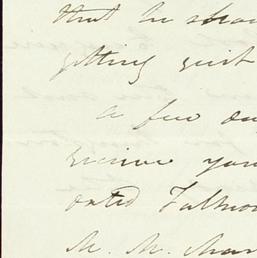 that he shou
getting quit
a few da
receive you
dated Falmo
M. M. Mar